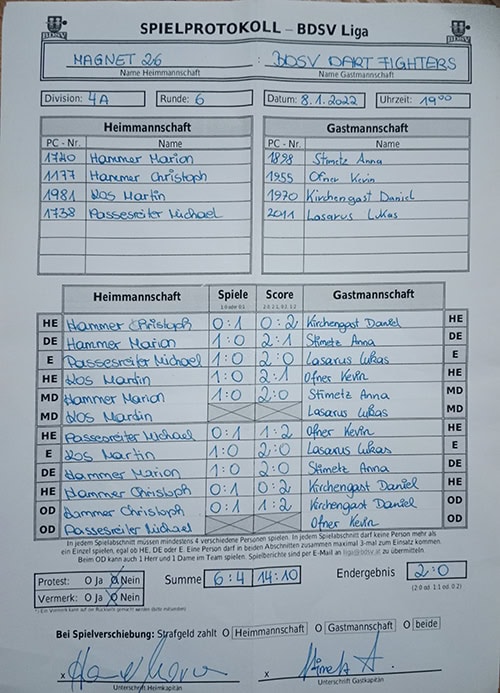 SPIELPROTOKOLL – BDSV Liga
MAGNET 26 : BDSV DART FIGHTERS
Name Heimmannschaft Name Gastmannschaft
Division: 4A Runde: 6 Datum: 8.1.2022 Uhrzeit: 19⁰⁰
Heimmannschaft Gastmannschaft
PC - Nr. Name PC - Nr. Name
1740 Hammer Marion 1898 Stimetz Anna
1177 Hammer Christoph 1955 Ofner Kevin
1981 Kos Martin 1970 Kirchengast Daniel
1738 Passesreiter Michael 2011 Lasarus Lukas
Heimmannschaft Spiele Score Gastmannschaft
1:0 oder 0:1 2:0, 2:1, 0:2, 1:2
HE Hammer Christoph 0:1 0:2 Kirchengast Daniel HE
DE Hammer Marion 1:0 2:1 Stimetz Anna DE
E Passesreiter Michael 1:0 2:0 Lasarus Lukas E
HE Kos Martin 1:0 2:1 Ofner Kevin HE
MD Hammer Marion 1:0 2:0 Stimetz Anna MD
MD Kos Martin Lasarus Lukas MD
HE Passesreiter Michael 0:1 1:2 Ofner Kevin HE
E Kos Martin 1:0 2:0 Lasarus Lukas E
DE Hammer Marion 1:0 2:0 Stimetz Anna DE
HE Hammer Christoph 0:1 0:2 Kirchengast Daniel HE
OD Hammer Christoph 0:1 1:2 Kirchengast Daniel OD
OD Passesreiter Michael Ofner Kevin OD
In jedem Spielabschnitt müssen mindestens 4 verschiedene Personen spielen. In jedem Spielabschnitt darf keine Person mehr als
ein Einzel spielen, egal ob HE, DE oder E. Eine Person darf in beiden Abschnitten zusammen maximal 3-mal zum Einsatz kommen.
Beim OD kann auch 1 Herr und 1 Dame im Team spielen. Spielberichte sind per E-Mail an liga@bdsv.at zu übermitteln.
Protest: O Ja O Nein Summe 6:4 14:10 Endergebnis 2:0
Vermerk: O Ja O Nein (2:0 od. 1:1 od. 0:2)
Bei Spielverschiebung: Strafgeld zahlt O Heimmannschaft O Gastmannschaft O beide
x x Stimetz A.
Unterschrift Heimkapitän Unterschrift Gastkapitän